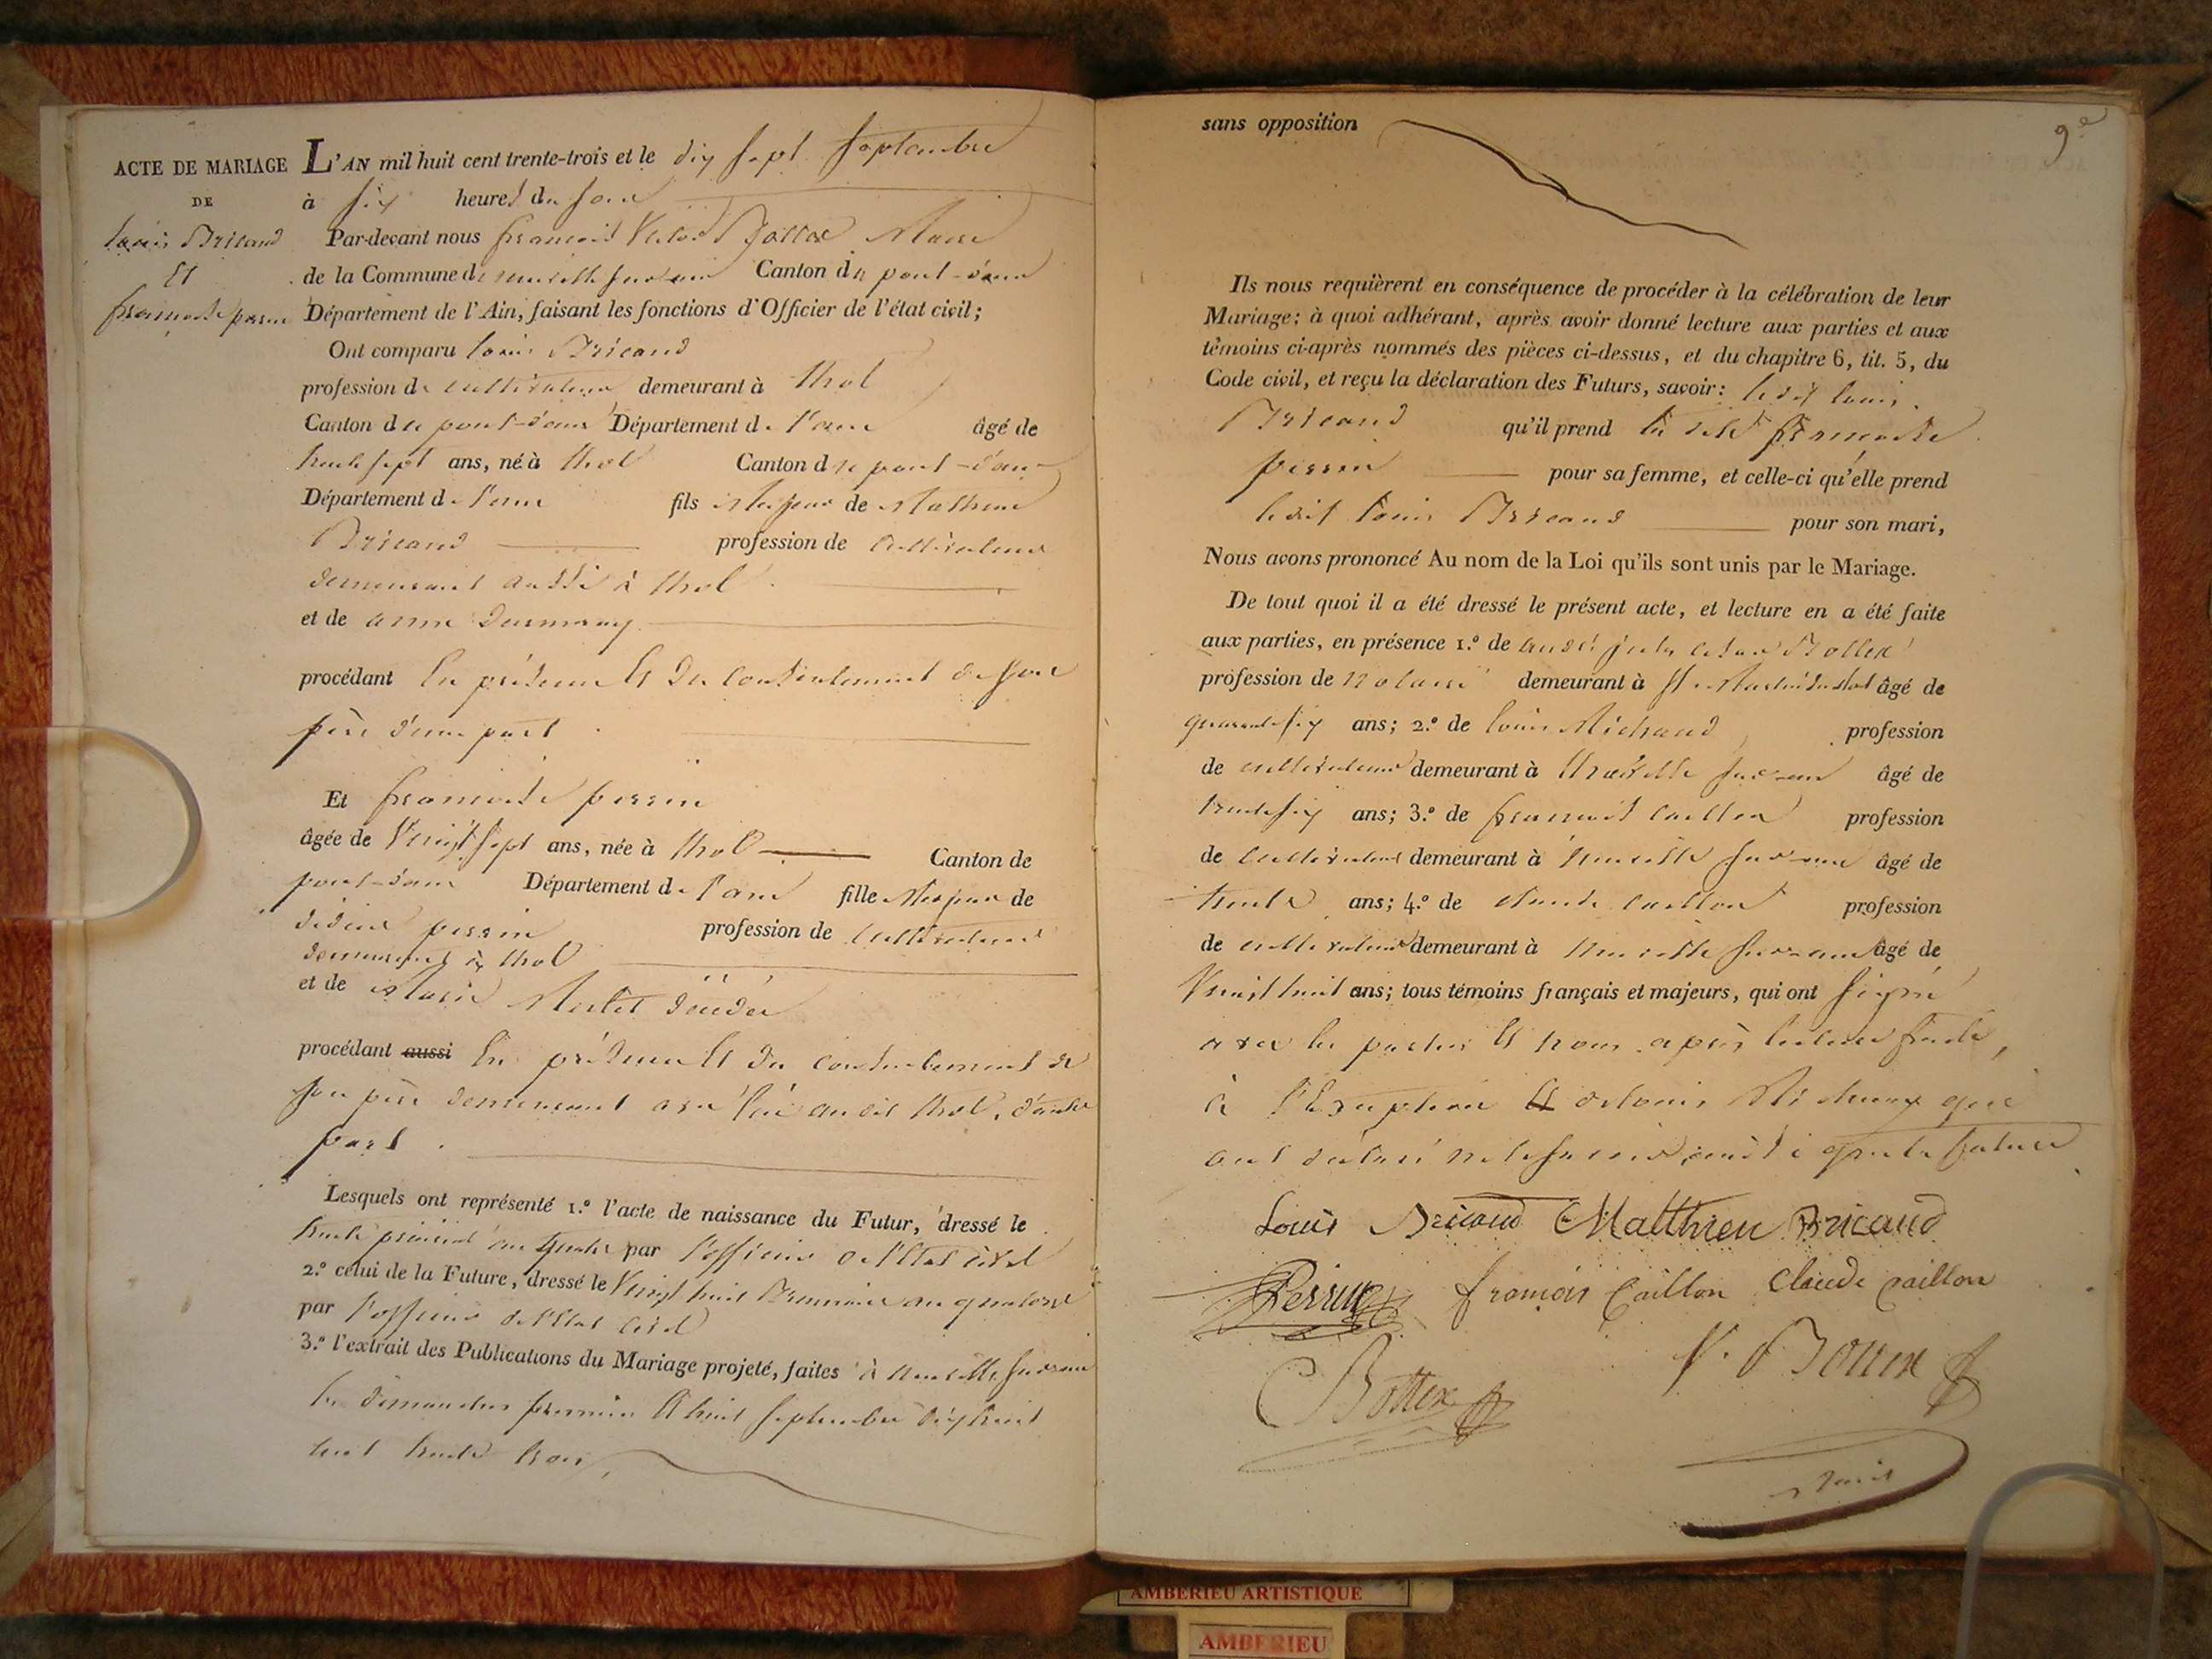 ACTE DE MARIAGE
DE
Louis Bricaud
Et
françoise perrin
L'AN mil huit cent trente-trois et le dix sept septembre
à six heures du soir
Par-devant nous françois Victor Bottex Maire
de la Commune de neuville sur ain Canton de pont-d'ain
Département de l'Ain, faisant les fonctions d'Officier de l'état civil;
Ont comparu louis Bricaud
profession de cultivateur demeurant à thol
Canton de pont-d'ain Département de l'ain âgé de
trente sept ans, né à thol Canton de pont-d'ain
Département de l'ain fils Majeur de Mathieu
Bricaud profession de cultivateur
demeurant aussi à thol
et de anne
procédant En présence et du consentement de son
père d'une part
Et françoise perrin
âgée de Vingt sept ans, née à thol Canton de
pont-d'ain Département de l'ain fille Majeure de
perrin profession de cultivateur
demeurant à thol
et de Marie
procédant aussi En présence et du consentement de
son père demeurant avec lui audit thol, d'autre
part.
Lesquels ont représenté 1.º l'acte de naissance du Futur, dressé le
trente prairial an quatre par l'officier de l'état civil
2.º celui de la Future, dressé le Vingt huit Brumaire an quatorze
par l'officier de l'état civil
3.º l'extrait des Publications du Mariage projeté, faites à neuville sur ain
les dimanches premier et huit septembre dix huit
cent trente trois
sans opposition
9e
Ils nous requièrent en conséquence de procéder à la célébration de leur
Mariage; à quoi adhérant, après avoir donné lecture aux parties et aux
témoins ci-après nommés des pièces ci-dessus, et du chapitre 6, tit. 5, du
Code civil, et reçu la déclaration des Futurs, savoir: ledit louis
Bricaud qu'il prend la dite françoise
perrin pour sa femme, et celle-ci qu'elle prend
ledit louis Bricaud pour son mari,
Nous avons prononcé Au nom de la Loi qu'ils sont unis par le Mariage.
De tout quoi il a été dressé le présent acte, et lecture en a été faite
aux parties, en présence 1.º de Bottex
profession de notaire demeurant à St Martin du Mont âgé de
quarante six ans; 2.º de louis Michaud profession
de cultivateur demeurant à neuville sur ain âgé de
trente six ans; 3.º de françois caillon profession
de cultivateur demeurant à neuville sur ain âgé de
trente ans; 4.º de claude caillon profession
de cultivateur demeurant à neuville sur ain âgé de
Vingt huit ans; tous témoins français et majeurs, qui ont signé
avec les parties et nous après lecture faite,
à l'exception de louis Michaud qui
ont déclaré ne le savoir, ainsi que la future
Louis Bricaud Matthieu Bricaud
Perrin françois Caillon Claude Caillon
Bottex V. Bottex
Maire
AMBERIEU ARTISTIQUE
AMBERIEU